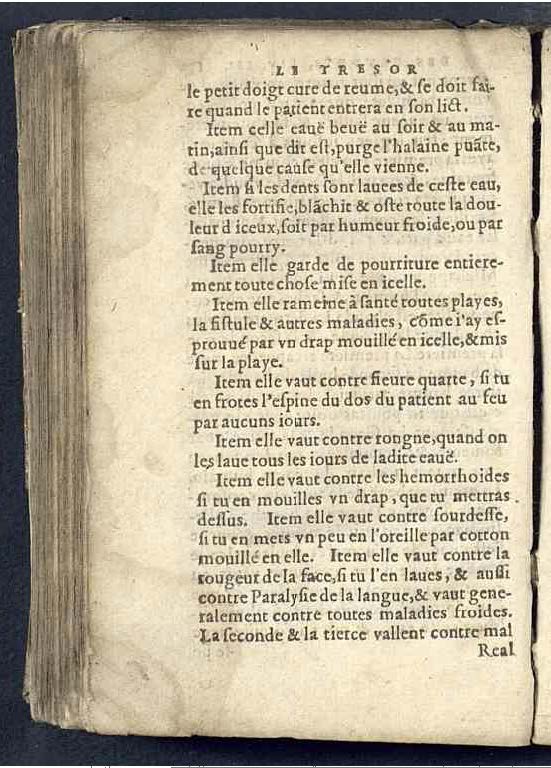 LE TRESOR
le petit doigt cure de reume,& se doit fai-
re quand le patient entrera en son lict.
Item celle eauë beuë au soir & au ma-
tin,ainsi que dit est,purge l'halaine puãte,
de quelque cause qu'elle vienne.
Item si les dents sont lauees de ceste eau,
elle les fortifie,blãchit & oste toute la dou-
leur d iceux,soit par humeur froide,ou par
sang pourry.
Item elle garde de pourriture entiere-
ment toute chose mise en icelle.
Item elle rameine à santé toutes playes,
la fistule & autres maladies, cõme i'ay es-
prouué par vn drap mouillé en icelle,& mis
sur la playe.
Item elle vaut contre fieure quarte, si tu
en frotes l'espine du dos du patient au feu
par aucuns iours.
Item elle vaut contre rongne,quand on
les laue tous les iours de ladite eauë.
Item elle vaut contre les hemorrhoides
si tu en mouilles vn drap, que tu mettras
dessus. Item elle vaut contre sourdesse,
si tu en mets vn peu en l'oreille par cotton
mouillé en elle. Item elle vaut contre la
rougeur de la face,si tu l'en laues, & aussi
contre Paralysie de la langue,& vaut gene-
ralement contre toutes maladies froides.
La seconde & la tierce vallent contre mal
Real